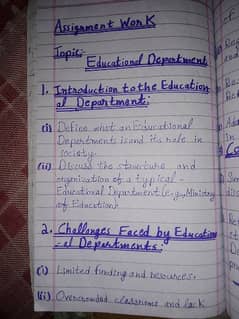 Assignment Work
Topic:-
Educational Department
1. Introduction to the Education-
al Department:
(i) Define what an Educational
Department is and its role in
society.
(ii) Discuss the structure and
organization of a typical
Educational Department (e.g., Ministry
of Education)
2. Challenges Faced by Education
-al Departments:
(i) Limited funding and resources.
(ii) Overcrowded classrooms and lack